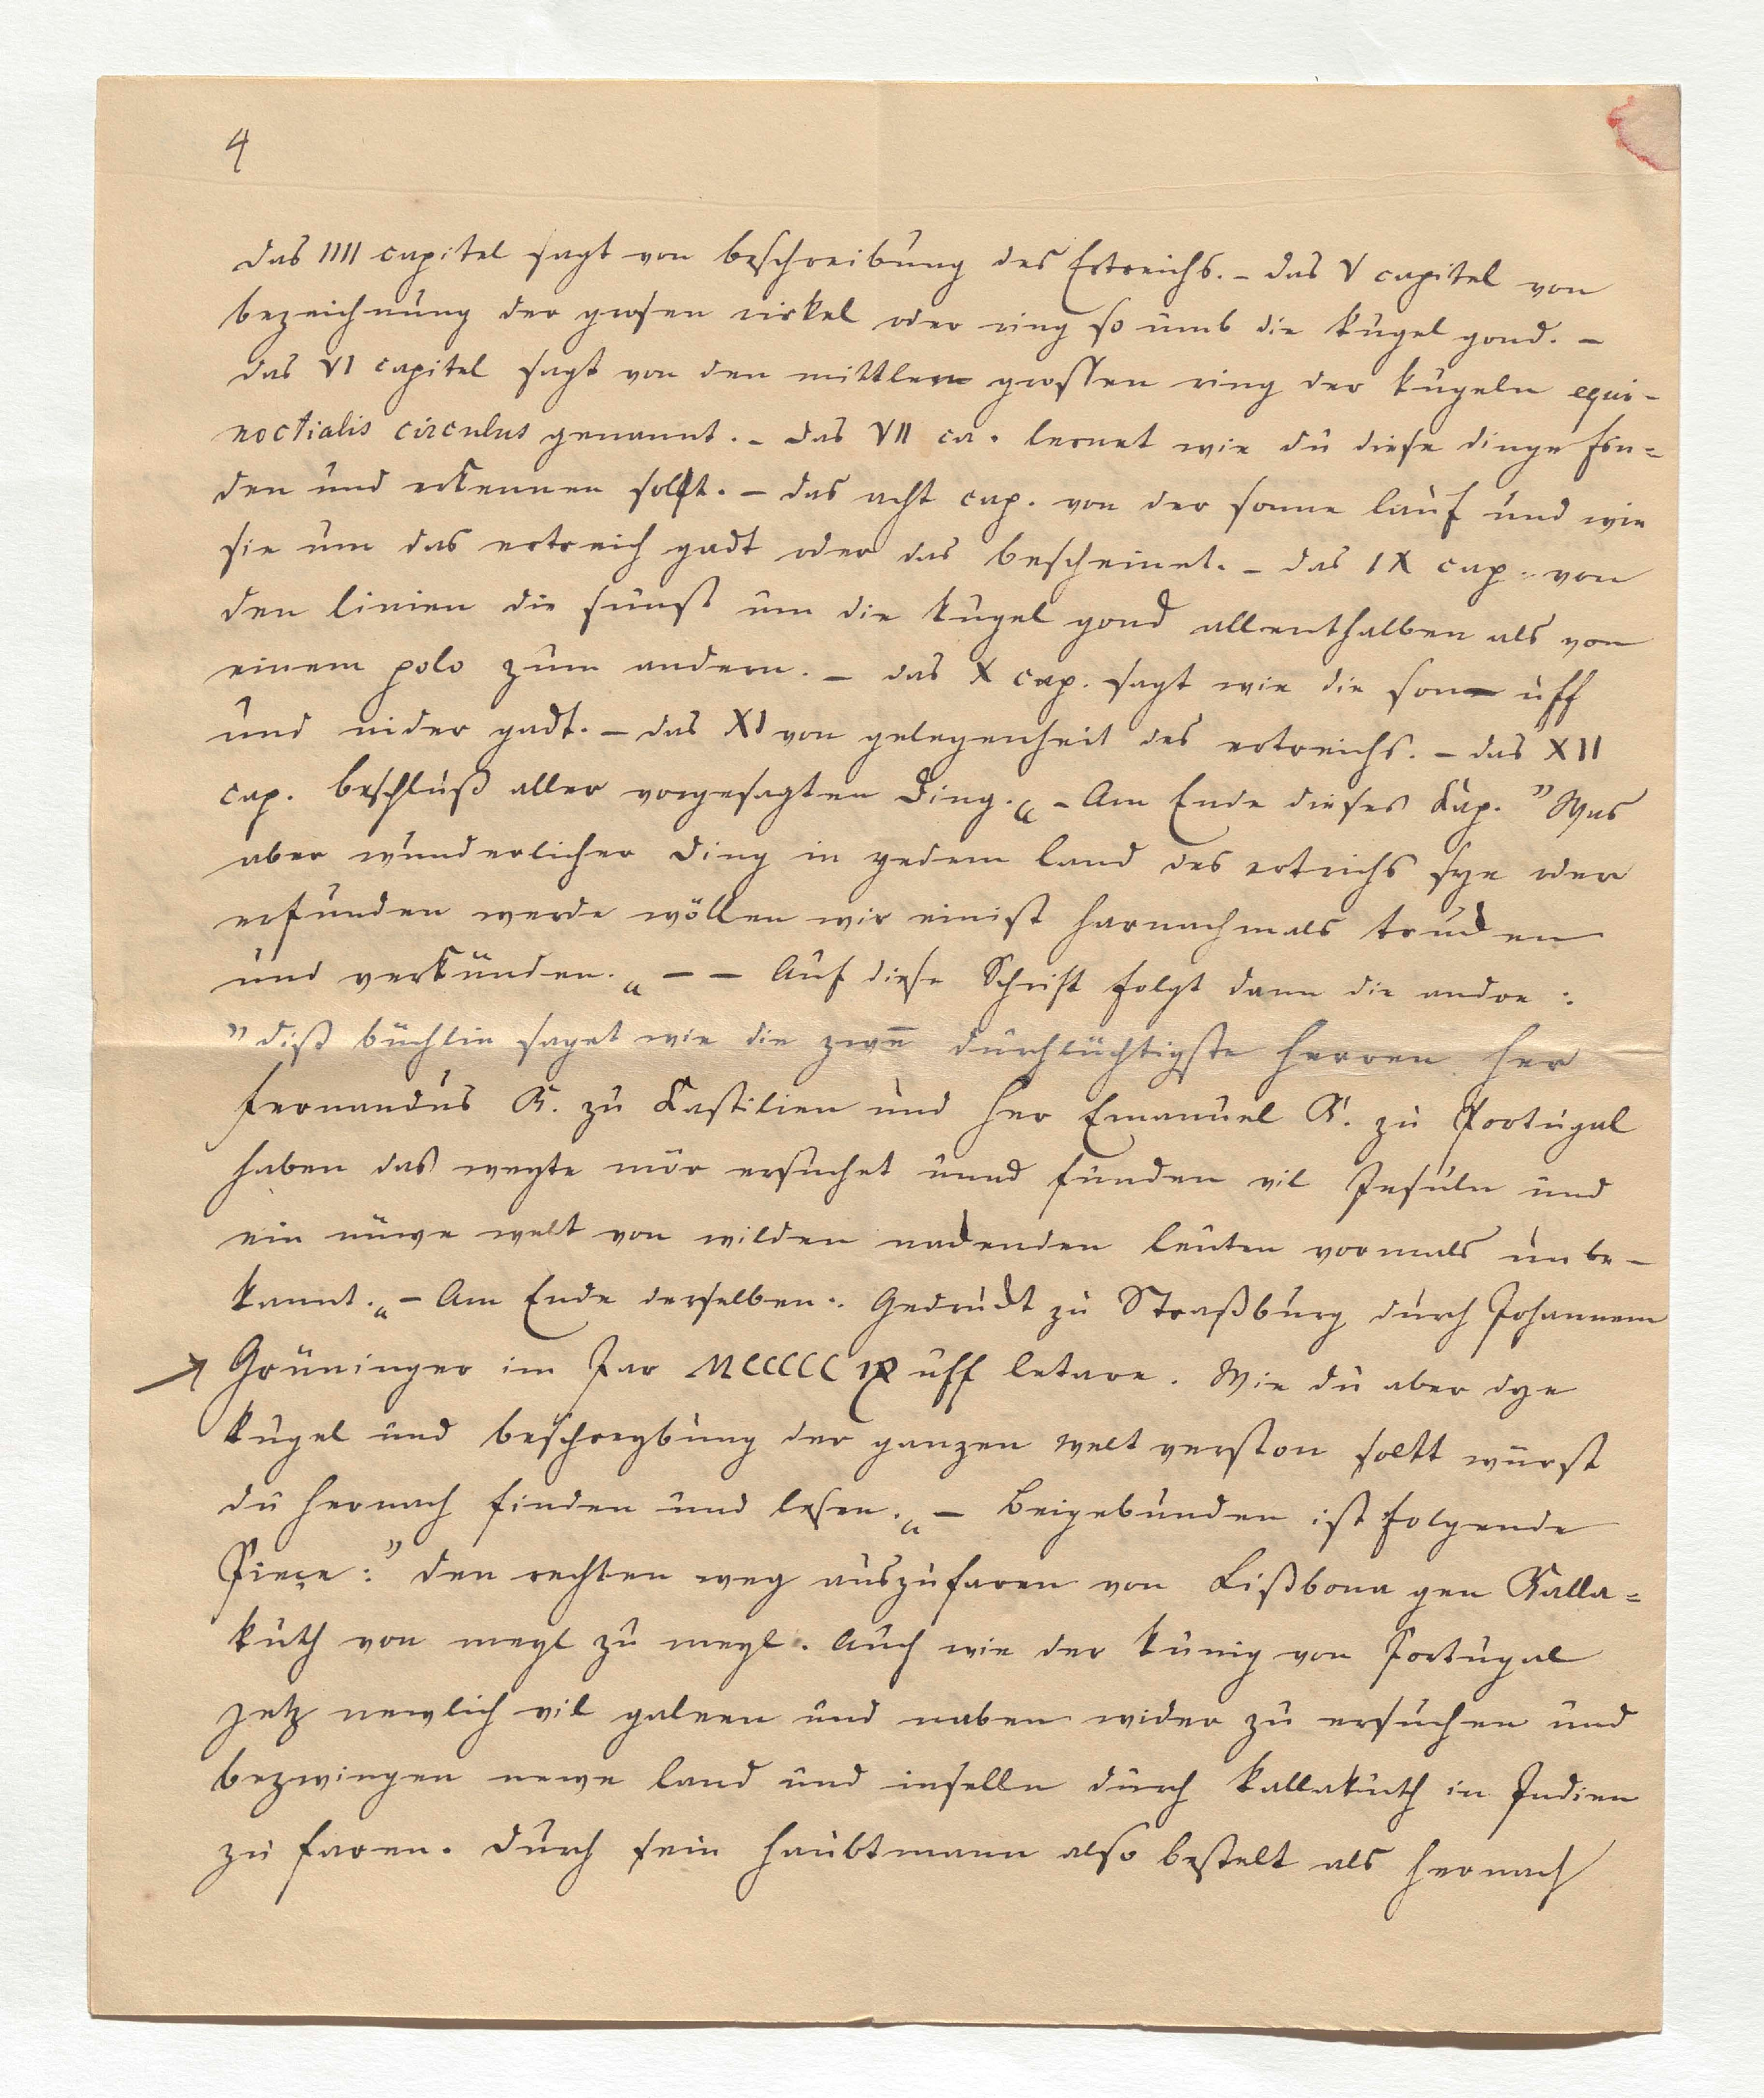 4
das IIII capitel sagt von beschreibung des Ertreichs. – das V capitel von
bezeichnung der grosen cirkel oder ring so umb die kugel gond. –
das VI capitel sagt von den mittlern grossen ring der kugeln equi-
noctialis circulus genannt. – das VII ca. lernet wie du diese dinge fin=
den und erkennen sollt. – das acht cap. von der sonne lauf und wie
sie um das ertreich gadt oder das bescheinet. – das IX cap. von
den linien die sunst um die kugel gond allenthalben als von
einem polo zum andern. – das X cap. sagt wie die sonn uff
und nider gadt. – das XI von gelegenheit des ertreichs. – das XII
cap. beschluß aller vorgesagten Ding.“ – Am Ende dieses Kap. ”Was
aber wunderlicher Ding in yedem land des ertrichs sye oder
erfunden werde wöllen wir einist harnachmals trucken
und verkünden.“ – – Auf diese Schrift folgt dann die andre:
”diß büchlin saget wie die zwen̄ durchlüchtigste herren her
Fernandus K. zu Kastilien und her Emanuel K. zu Portugal
haben das weyte mör ersuchet unnd funden vil Insuln und
ein nüwe welt von wilden nackenden leuten vormals unbe-
kannt.“ – Am Ende derselben: Gedruckt zu Straßburg durch Johannem
→ Grüninger im Jar MCCCCC IX uff letare. Wie du aber dye
kugel und beschreybung der ganzen welt verston soltt würst
du hernach finden und lesen.“ – Beigebunden ist folgende
Pieçe: ”den rechten weg auszufaren von Lißbona gen Kalla=
kuth von meyl zu meyl. Auch wie der künig von Portugal
yetz newlich vil galeen und naben wider zu ersuchen und
bezwingen newe land und inselln durch kallakuth in Indien
zu faren. Durch sein haubtmann also bestelt als hernach